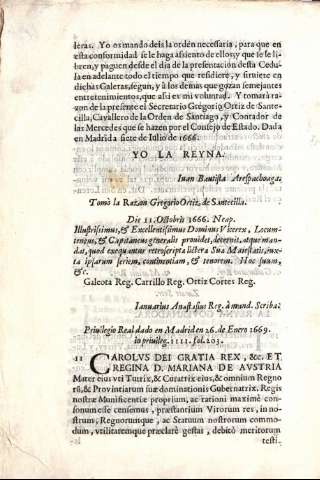 deras. Yo os mando deis la orden necessaria, para que en
esta conformidad se le haga asiento de ellos, y que se le li-
bren, y paguen desde el dia de la presentacion desta Cedu-
la en adelante todo el tiempo que residiere, y sirviere en
dichas Galeras, segun, y à los demàs que gozan semejantes
entretenimientos, que assi es mi voluntad. Y tomarà ra-
zon de la presente el Secretario Gregorio Ortiz de Sante-
cilla, Cavallero de la Orden de Santiago, y Contador de
las Mercedes que se hazen por el Consejo de Estado. Dada
en Madrid à siete de Iulio de 1666.
YO LA REYNA.
Iuan Bautista Arespachoaga.
Tomò la Razon Gregorio Ortiz, de Santecilla.
Die 11. Octobris 1666. Neap.
Illustrissimus, & Excellentissimus Dominus Vicerex, Locum-
tenens, & Capitaneus generalis providet, decernit, atque man-
dat, quod exequantur retroscripta littera Sua Maiestatis, iux-
ta ipsarum seriem, continentiam, & tenorem. Hoc suum,
&c.
Galeota Reg. Carrillo Reg. Ortiz Cortes Reg.
Ianuarius Anastasius Reg. à mand. Scriba.
Privilegio Real dado en Madrid en 26. de Enero 1669.
in privileg. IIII. fol. 203.
11 CAROLVS DEI GRATIA REX, &c. ET
REGINA D. MARIANA DE AVSTRIA
Mater eius vti Tutrix, & Curatrix eius, & omnium Regno
rũ, & Provintiarum sur dominationis Gubernatrix. Regis
nostræ Munificentiæ proprium, ac rationi maximè con-
sonum esse censemus, præstantium Virorum res, in no-
strum, Regnorumque, ac Statuum nostrorum commo-
dum, vtilitatemque præclarè gestas, debito meritorum
testi-